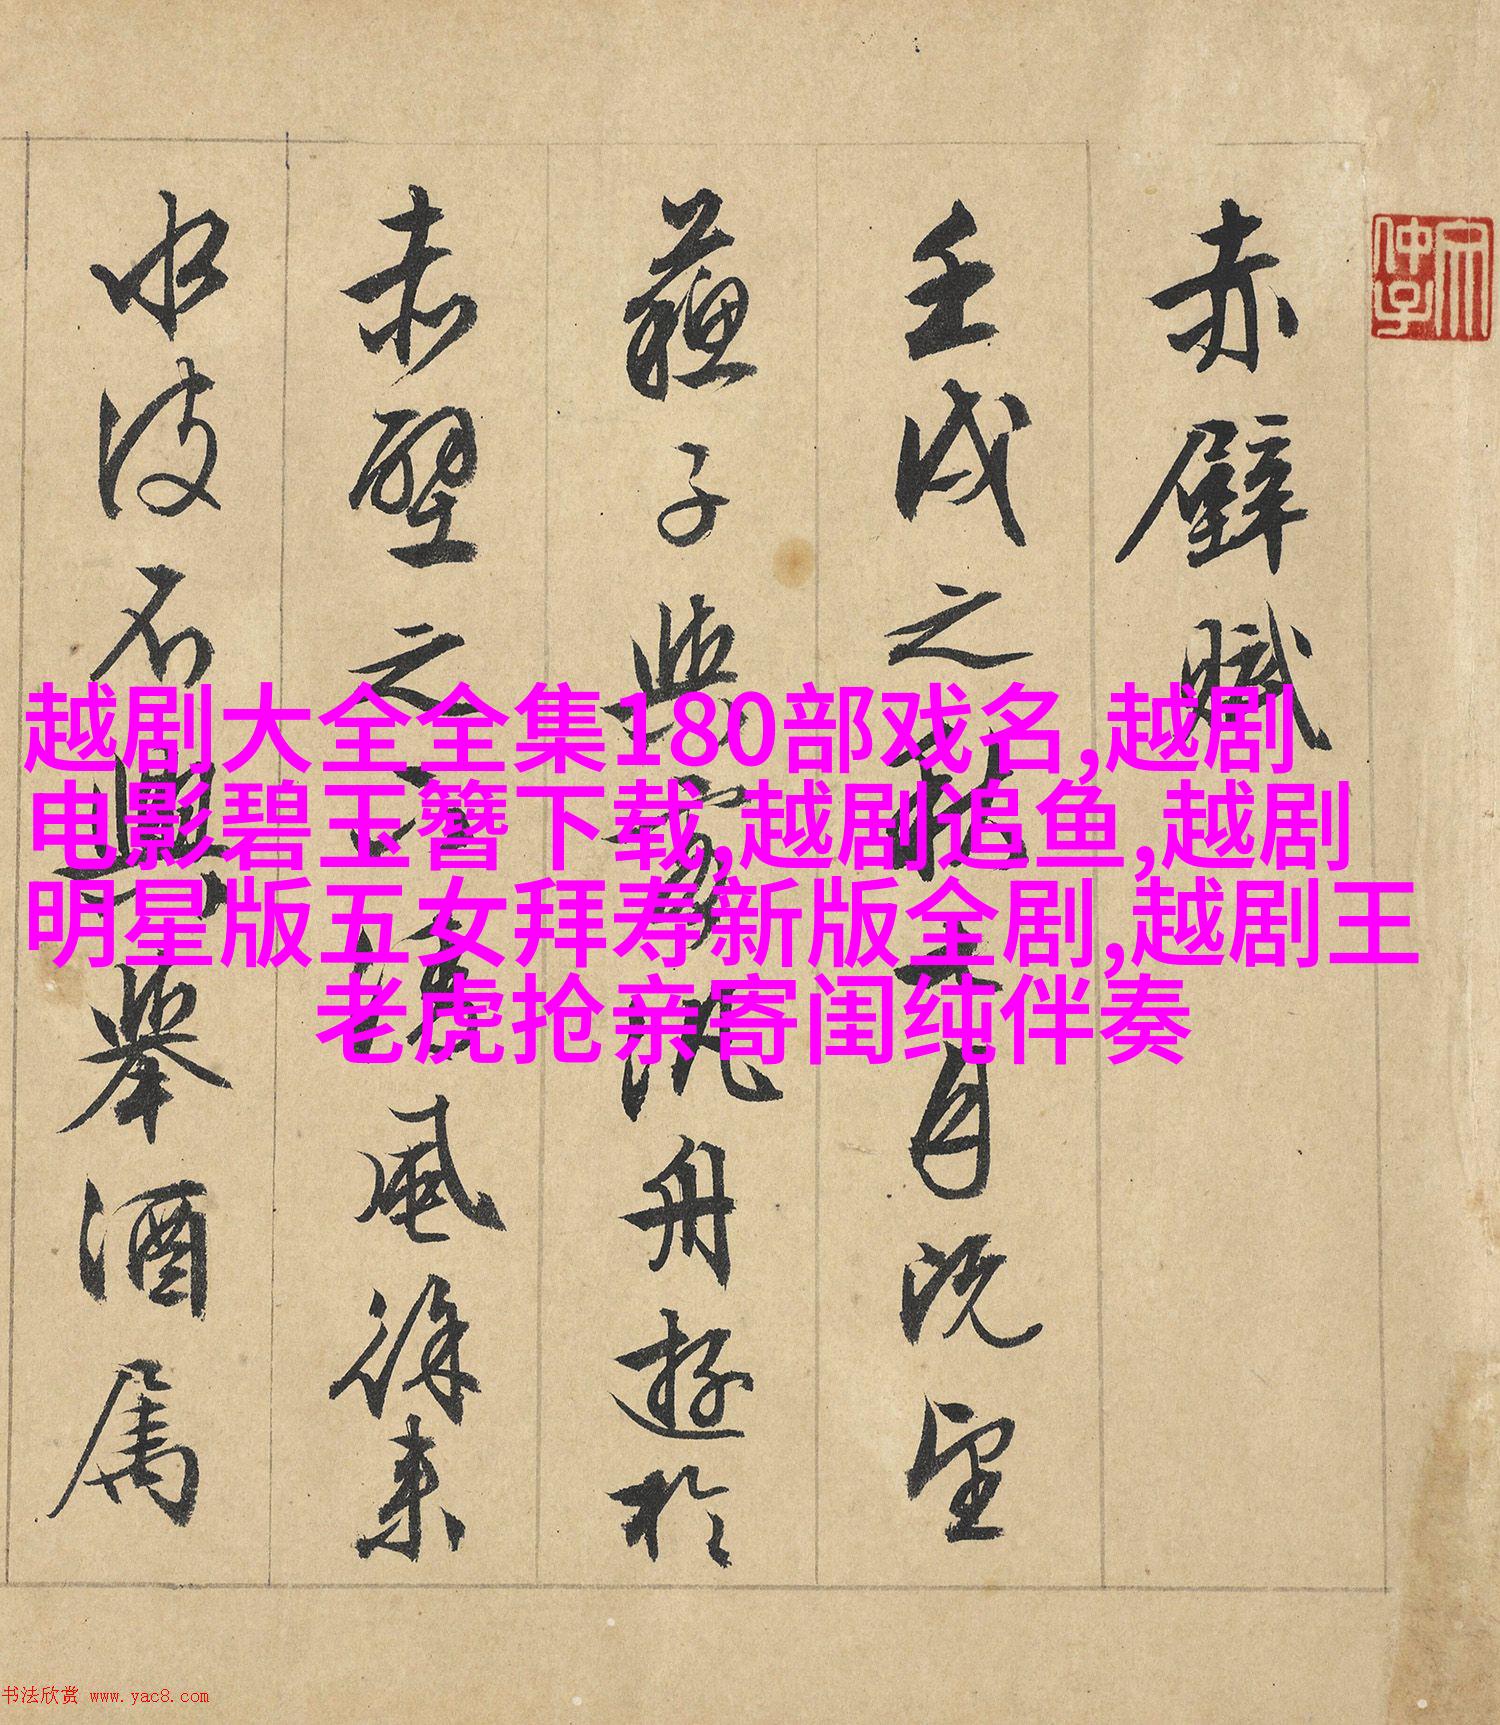 赤壁賦
壬戌之秋七月既望
蘇子與客汎舟遊於
赤壁之下清風徐来
水波不興舉酒属
越剧大全全集180部戏名,越剧
电影碧玉簪下载,越剧追鱼,越剧
明星版五女拜寿新版全剧,越剧王
老虎抢亲寄闺纯伴奏
书法欣赏 www.yac8.com